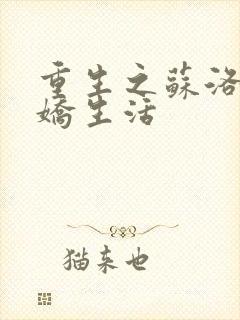 重生之蘇洛
嬌生活
猫来也